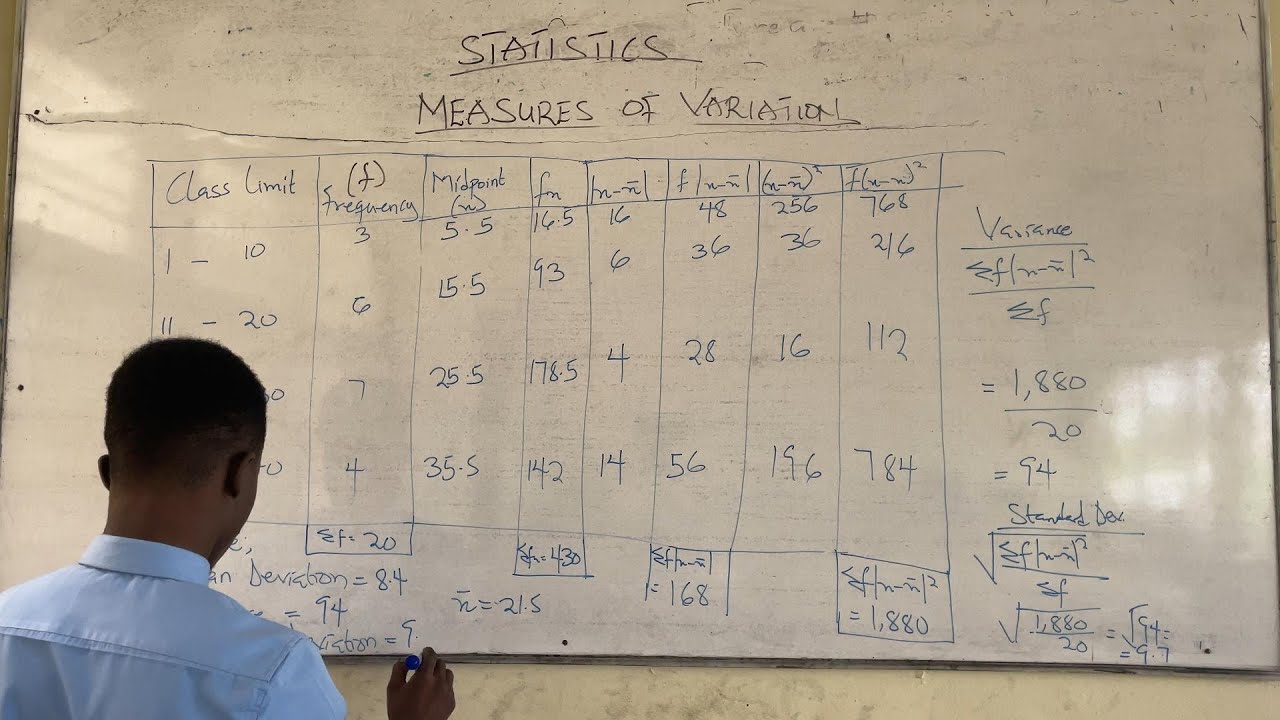 STATISTICS
MEASURES OF VARIATION
Class Limit (f) frequency Midpoint (x) fx |x-x̄| f|x-x̄| (x-x̄)² f(x-x)²
1 - 10 3 5.5 16.5 16 48 256 768
11 - 20 6 15.5 93 6 36 36 216
7 25.5 178.5 4 28 16 112
4 35.5 142 14 56 196 784
Σf = 20 Σfx = 430 Σf|x-x̄| = 168 Σf|x-x̄|² = 1,880
Deviation = 8.4
= 94
= 9.
x̄ = 21.5
Variance
Σf|x-x̄|²
Σf
= 1,880
20
= 94
Standard Dev.
√Σf|x-x̄|²
Σf
√1,880 = √94 =
20 = 9.7